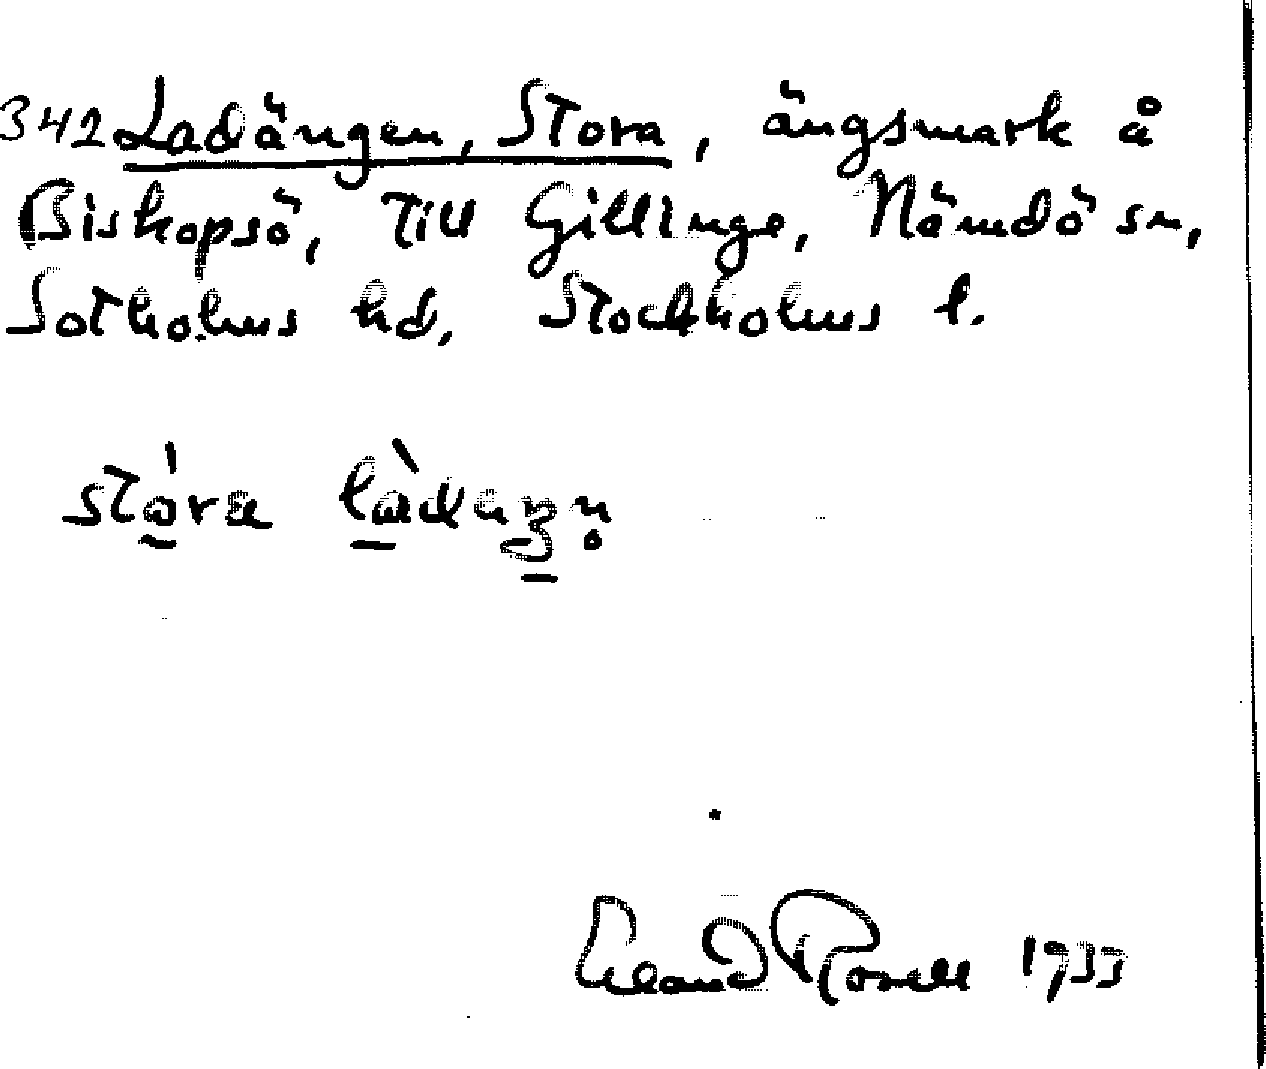 342 Ladängen, Stora, ängsmark å
Biskopsö, Till Gillinge, Nämdö sn,
Sotholms hd, Stockholms l.
stora
Erland Rosell 1933